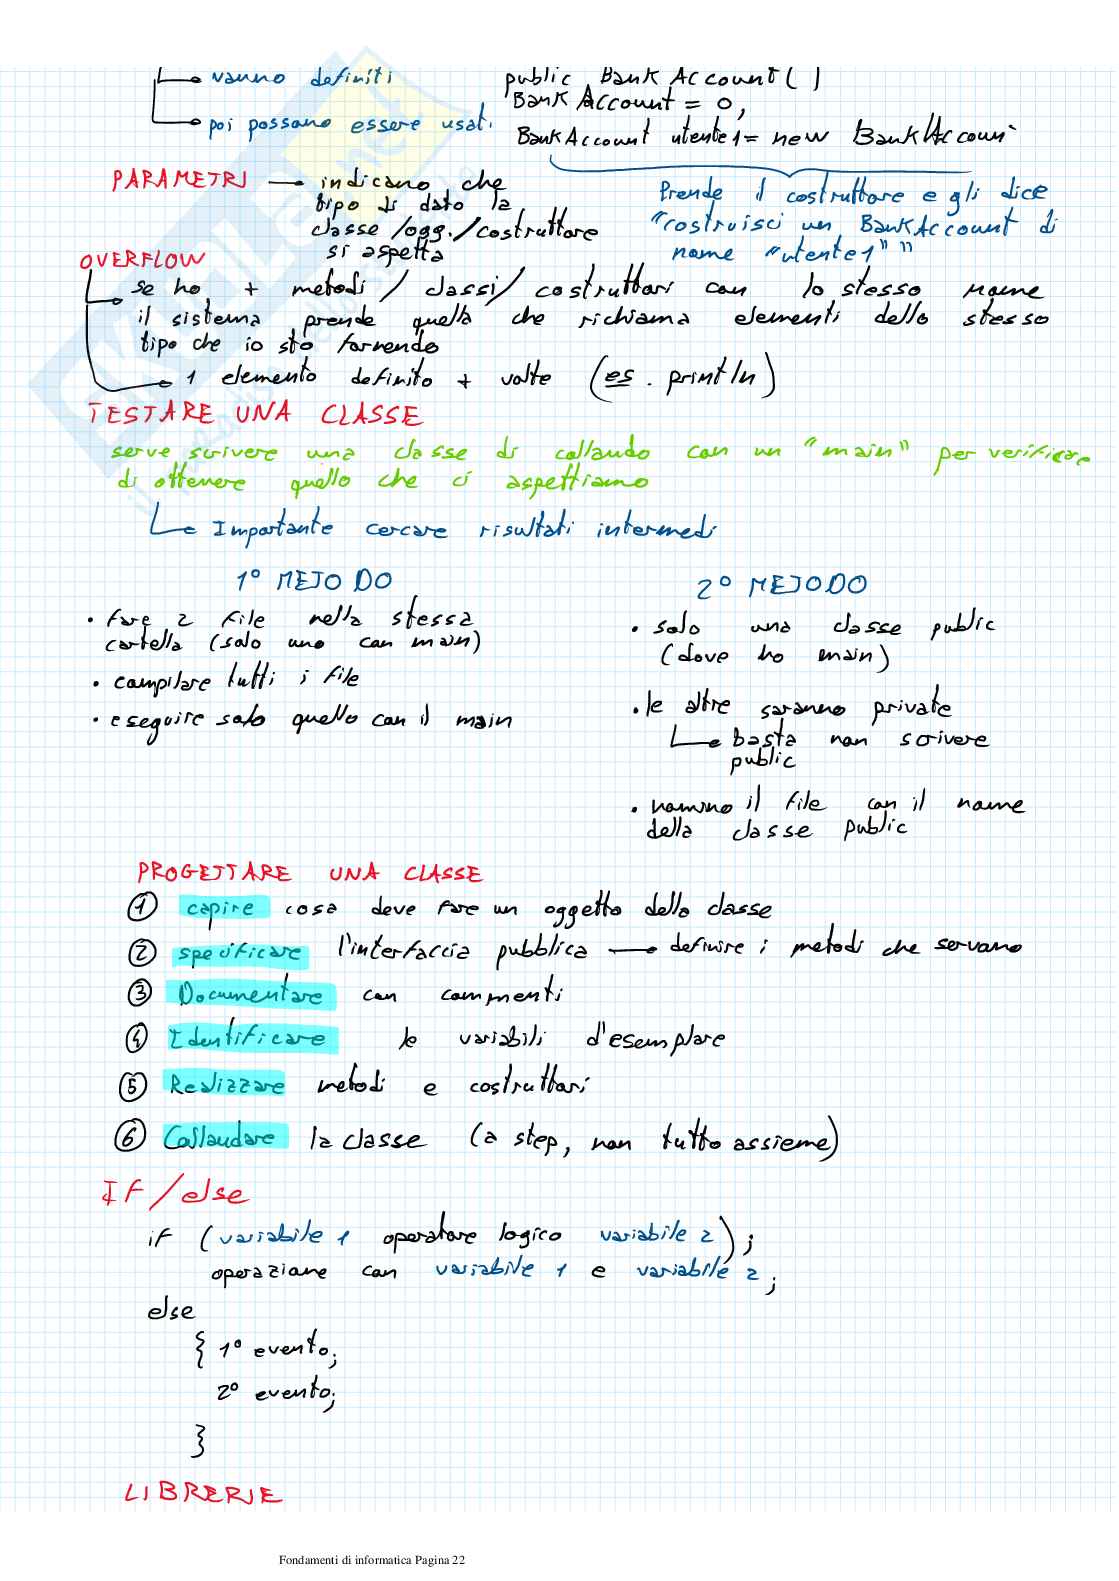 vanno definiti
poi possono essere usati
public BankAccount( )
BankAccount = 0;
BankAccount utente1 = new BankAccoun
Prende il costruttore e gli dice
"costruisci un BankAccount di
nome "utente1" "
PARAMETRI → indicano che
tipo di dato la
classe /ogg./costruttore
si aspetta
OVERFLOW
se ho + metodi / classi / costruttori con lo stesso nome
il sistema prende quella che richiama elementi dello stesso
tipo che io sto fornendo
1 elemento definito + volte (es. println)
TESTARE UNA CLASSE
serve scrivere una classe di collaudo con un "main" per verificare
di ottenere quello che ci aspettiamo
Importante cercare risultati intermedi
1° METODO
• fare 2 file nella stessa
cartella (solo uno con main)
• compilare tutti i file
• eseguire solo quello con il main
2° METODO
• solo una classe public
(dove ho main)
• le altre saranno private
basta non scrivere
public
• nomino il file con il nome
della classe public
PROGETTARE UNA CLASSE
① capire cosa deve fare un oggetto della classe
② specificare l'interfaccia pubblica → definire i metodi che servono
③ Documentare con commenti
④ Identificare le variabili d'esemplare
⑤ Realizzare metodi e costruttori
⑥ Collaudare la classe (a step, non tutto assieme)
IF/else
if (variabile 1 operatore logico variabile 2);
operazione con variabile 1 e variabile 2;
else
{ 1° evento;
2° evento;
}
LIBRERIE
Fondamenti di informatica Pagina 22